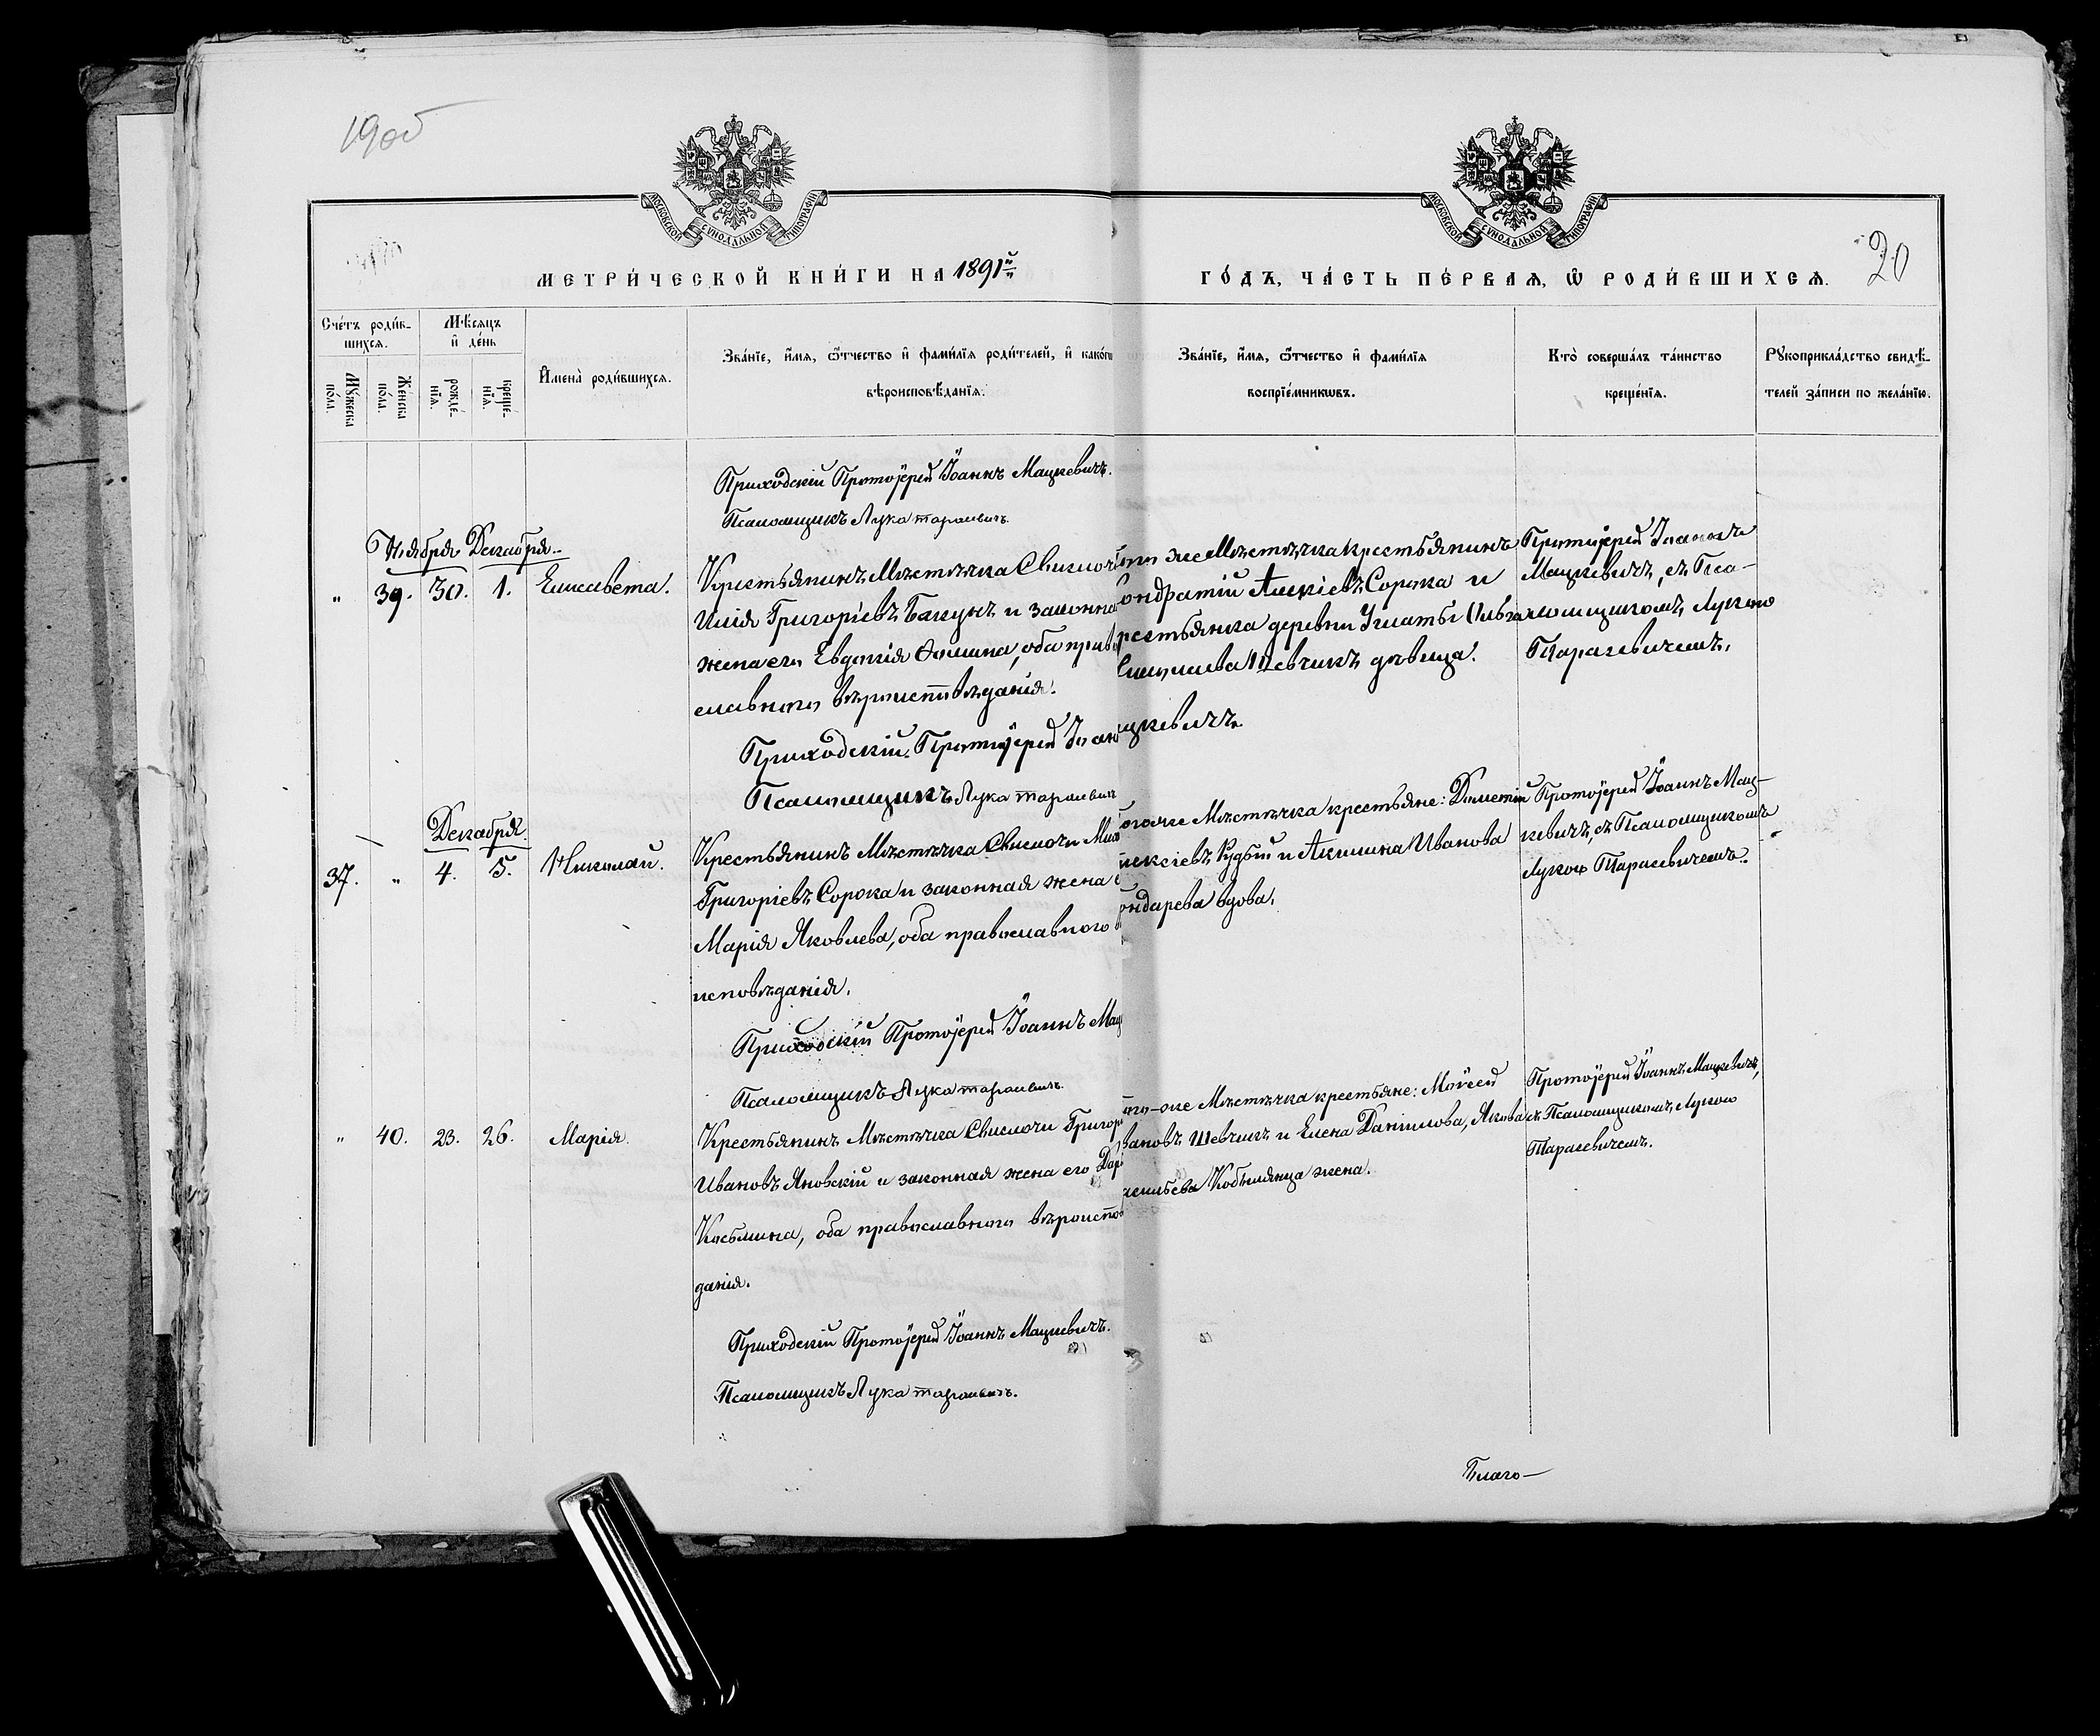 19об
МОСКОВСКОЙ СѴНОДАЛЬНОЙ ТИПОГРАФІИ
МОСКОВСКОЙ СѴНОДАЛЬНОЙ ТИПОГРАФІИ
МЕТРИ́ЧЕСКОЙ КНИ́ГИ НА 1891й
ГО́ДЪ, ЧА́СТЬ ПЕ́РВАѦ, Ѡ҆ РОДИ́ВШИХСѦ. 20
Сче́тъ роди́в-
шихсѧ.
Мѣ́сѧцъ
и҆ де́нь
Мꙋ́жеска
по́ла.
Же́нска
по́ла.
рожде́-
нїѧ.
креще́-
нїѧ.
И҆мена̀ роди́вшихсѧ.
Зва́нїе, и҆́мѧ, ѻ҆́тчество и҆ фами́лїѧ роди́телей, и҆ како́гѡ
вѣроисповѣ́данїѧ.
Зва́нїе, и҆́мѧ, ѻ҆́тчество и҆ фами́лїѧ
воспрїе́мникѡвъ.
Кто̀ соверша́лъ та́инство
креще́нїѧ.
Рꙋкоприкла́дство свидѣ́-
телей за́писи по жела́нїю.
Приходскій Протоіерей Іоаннъ Мацкевичъ.
Псаломщикъ Лука Тарасевичъ.
Ноября Декабря
" 39. 30. 1. Елисавета.
Крестьянинъ Мѣстѣчка Свислочи
Илія Григоріевъ Бакунъ и законная
жена его Евдокія Ѳомина, оба право
славнаго вѣроисповѣданія.
того же Мѣстѣчка крестьянинъ
Кондратій Алексіевъ Сорока и
крестьянка деревни Углаты
Шевчикъ дѣвица.
Протоіерей Іоаннъ
Мацкевичъ, съ Пса-
ломщикомъ Лукою
Тарасевичемъ.
Приходскій Протоіерей Іоаннъ Мацкевичъ.
Псаломщикъ Лука Тарасевичъ
Декабря
37. " 4. 5. Николай.
Крестьянинъ Мѣстѣчка Свислочи
Григоріевъ Сорока и законная жена
Марія Яковлева, оба православнаго
исповѣданія.
того же Мѣстѣчка крестьяне: Дометій
Алексіевъ и Акилина Иванова
Бондарева вдова.
Протоіерей Іоаннъ Мац-
кевичъ, съ Псаломщикомъ
Лукою Тарасевичемъ.
Приходскій Протоіерей Іоаннъ Мац
Псаломщикъ Лука Тарасевичъ
" 40. 23. 26. Марія.
Крестьянинъ Мѣстѣчка Свислочи Григорій
Ивановъ Яновскій и законная жена его Дарія
Косьмина, оба православнаго вѣроиспов
данія.
того-же Мѣстѣчка крестьяне: Моисей
Ивановъ Шевчикъ и Елена Даніилова, Якова
Васильева Кобылянца жена.
Протоіерей Іоаннъ Мацкевичъ,
съ Псаломщикомъ Лукою
Тарасевичемъ.
Приходскій Протоіерей Іоаннъ Мацкевичъ.
Псаломщикъ Лука Тарасевичъ.
Благо-